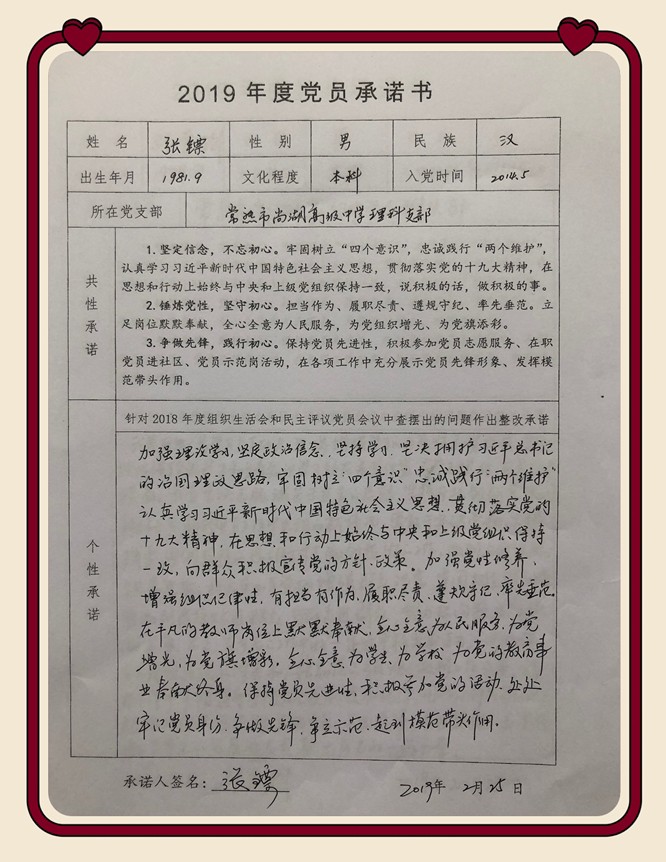 2019年度党员承诺书
姓 名 张镖 性 别 男 民 族 汉
出生年月 1981.9 文化程度 本科 入党时间 2014.5
所在党支部 常熟市尚湖高级中学理科支部
共性承诺
1.坚定信念，不忘初心。牢固树立“四个意识”，忠诚践行“两个维护”，
认真学习习近平新时代中国特色社会主义思想，贯彻落实党的十九大精神，在
思想和行动上始终与中央和上级党组织保持一致，说积极的话，做积极的事。
2.锤炼党性，坚守初心。担当作为、履职尽责、遵规守纪、率先垂范。立
足岗位默默奉献，全心全意为人民服务，为党组织增光、为党旗添彩。
3.争做先锋，践行初心。保持党员先进性，积极参加党员志愿服务、在职
党员进社区、党员示范岗活动，在各项工作中充分展示党员先锋形象、发挥模
范带头作用。
个性承诺
针对2018年度组织生活会和民主评议党员会议中查摆出的问题作出整改承诺
加强理论学习，坚定政治信念，坚持学习，坚决拥护习近平总书记
的治国理政思路，牢固树立“四个意识”忠诚践行“两个维护”
认真学习习近平新时代中国特色社会主义思想，贯彻落实党的
十九大精神，在思想和行动上始终与中央和上级党组织保持
一致，向群众积极宣传党的方针、政策。加强党性修养、
增强组织纪律性，有担当有作为，履职尽责，遵规守纪，率先垂范。
在平凡的教师岗位上默默奉献，全心全意为人民服务，为党
增光，为党旗增彩。全心全意为学生，为学校，为党的教育事
业奉献终身。保持党员先进性，积极参加党的活动，处处
牢记党员身份，争做先锋，争立示范，起到模范带头作用。
承诺人签名：张镖 2019年 2月25日